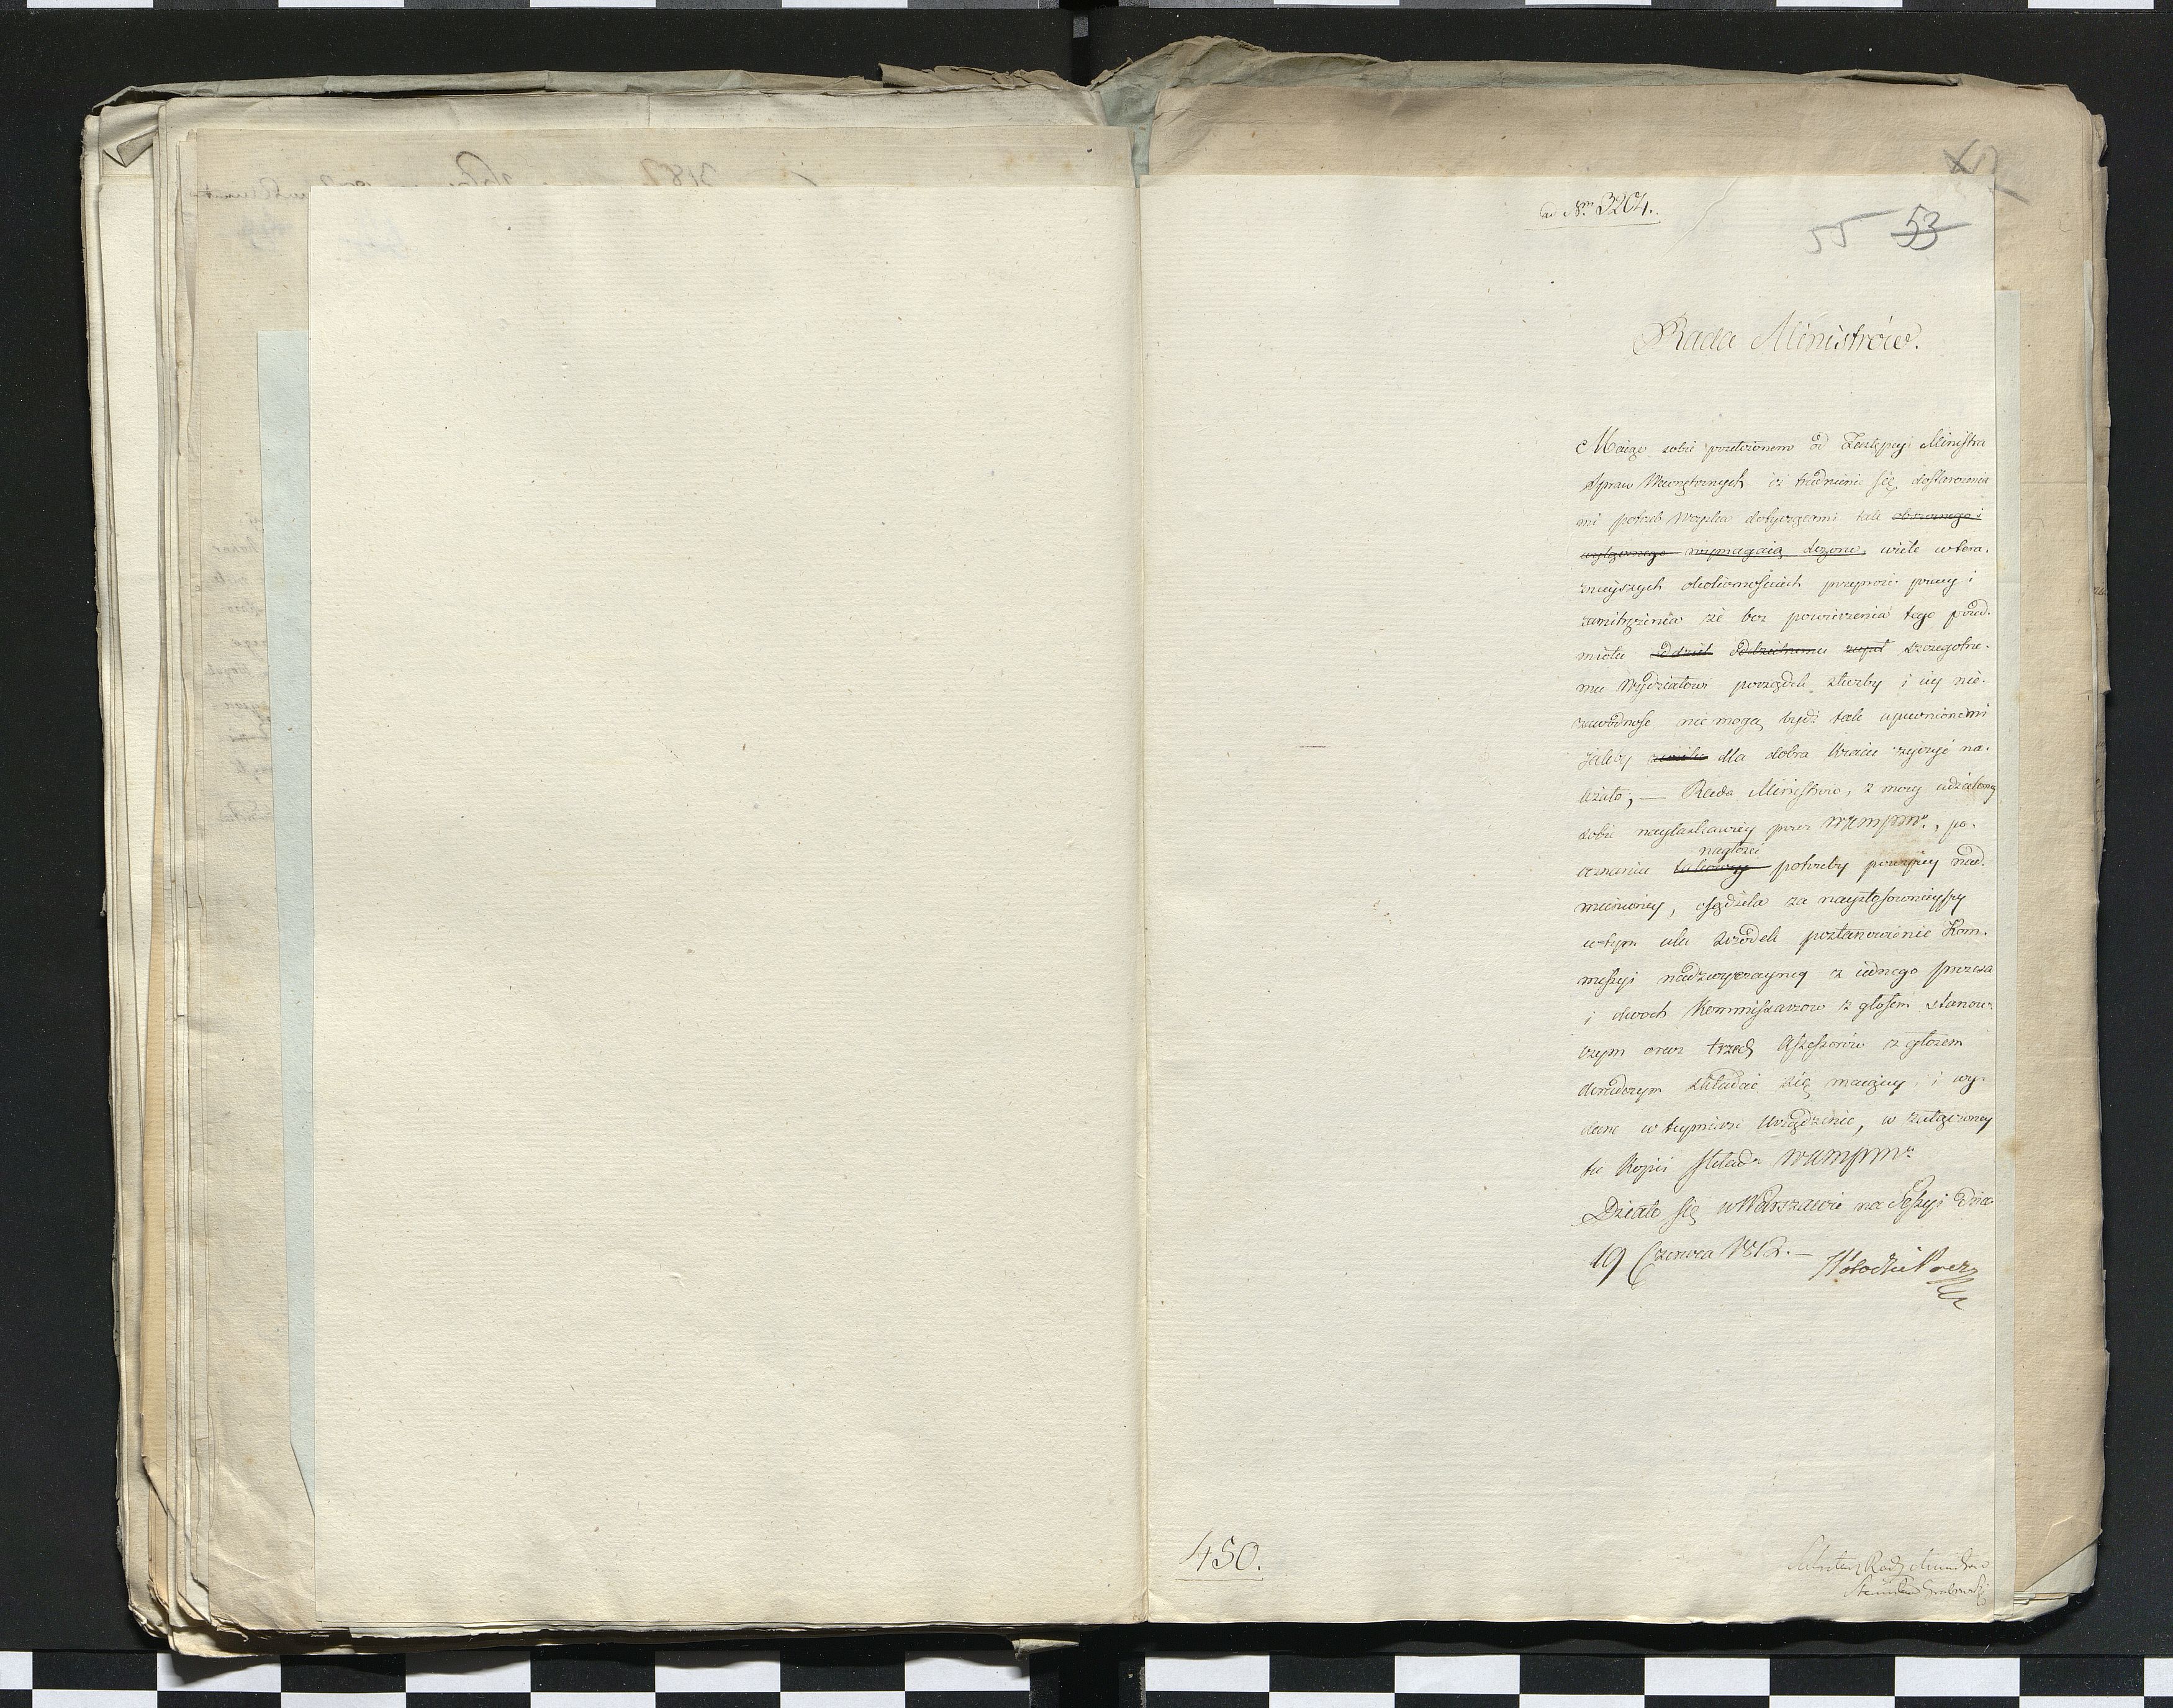 ad Nrm 3204.
55 53
Rada Ministrów.
Maiąc sobie przełożonem od Zastępcy Ministra
Spraw Wewnętrznych iż trudnienie się dostarczenia
mi potrzeb Woyska dotyczącemi tak obszernego i
wyłącznego wymagaią dozoru, wiele w tera.
znieyszych okolicznościach przynosi pracy i
zamitrężenia że bez powierzenia tego przed.
miotu oddział oddzielnemu zupeł szczegolne.
mu Wydziałowi porządek służby i iey nie.
zawodność nie mogą bydź tak upewnionemi
jakby dla dobra Kraiu życzyć na.
leżało, — Rada Ministrow, z mocy udzieloney
sobie nayłaskawiey przez WKMPMn., po.
uznaniu nagłości takowey potrzeby powyżey nad.
mienioney, osądziła za naystosownieyszy
w tym celu środek postanowienie Kom.
missyi nadzwyczayney z iednego prezesa
i dwoch Kommissarzow z głosem stanow
czym oraz trzech Assessorów z głosem
doradczym składać się maiącey, i wy.
dane w teymierze Urządzenie, w załączoney
tu Kopii składa WKMPMu.
Działo się w Warszawie na Sessyi dnia
19 Czerwca 1812. —
450.
Sekretarz Rady Ministrow
Stanisław Grabowski